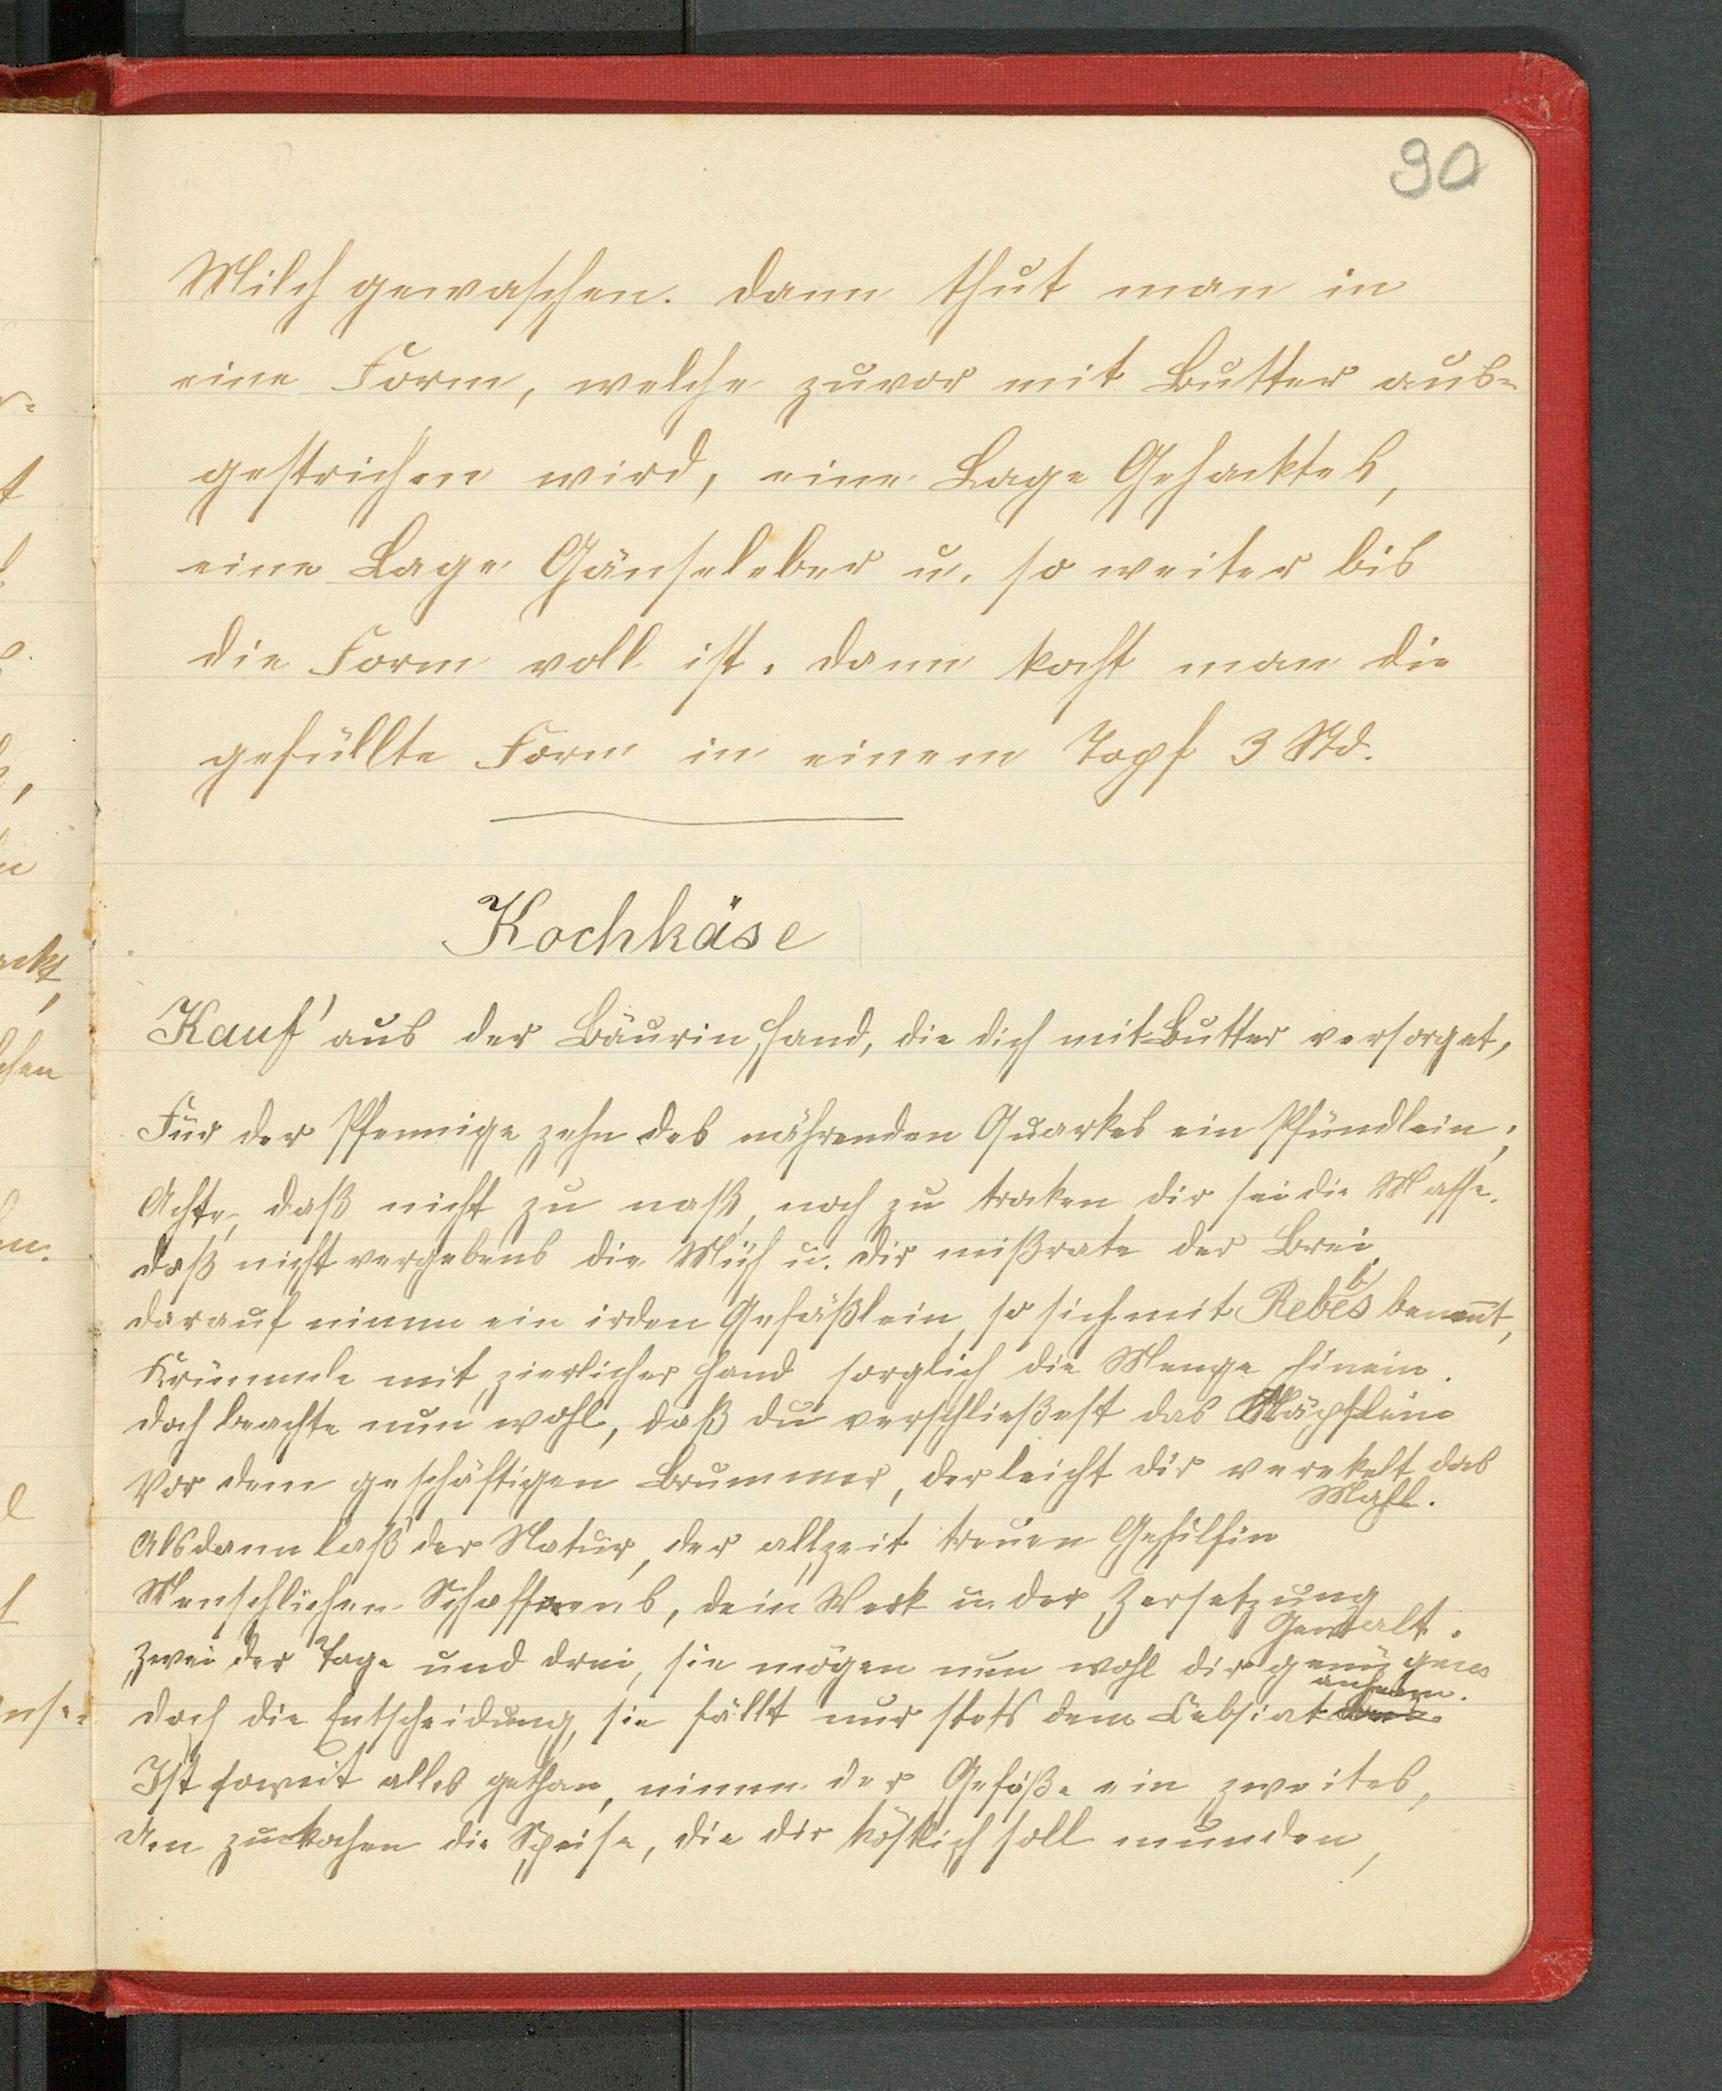 90
Milch gewaschen. Dann thut man in
eine Form, welche zuvor mit Butter aus-
gestrichen wird, eine Lage Gehacktes,
eine Lage Gänseleber u. so weiter bis
die Form voll ist. Dann kocht man die
gefüllte Form in einem Topf 3 Std.
Kochkäse
Kauf' aus der Bäurin Hand, die dich mit Butter versorget,
Für der Pfennige zehn des nährenden Quarkes ein Pfündlein;
Achte, daß nicht zu naß, noch zu troken dir sei die Masse.
Daß nicht vergebens die Müh u. dir mißrate der Brei,
Darauf nimm ein irden Gefäßlein, so sich mit Rebbes benennt,
Krümmele mit zierlicher Hand sorglich die Menge hinein.
Doch beachte nun wohl, daß du verschließest das Näpflein
Vor dem geschäftigen Brummer, der leicht dir verekelt das
Mahl.
Alsdann laß der Natur, der allzeit treuen Gehilfin
Menschlichen Schaffens, dein Werk u. der Zersetzung
Gewalt.
Zwei der Tage und drei, sie mögen nun wohl dir genügen
anheim.
Doch die Entscheidung, sie fällt nur stets dem Celsiat
Ist soweit alles gethan, nimm der Gefäße ein zweites,
Um zu kochen die Speise, die dir köstlich soll munden,